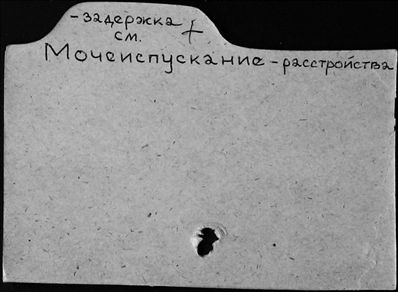 -задержка +
см.
Мочеиспускание - расстройства